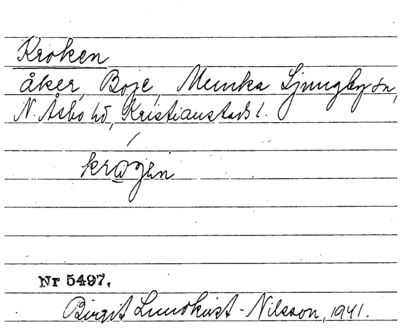 Kroken
åker, Boje, Munka Ljungby sn,
N. Åsbo hd, Kristianstads l.
Nr 5497.
Birgit Lundkvist-Nilsson, 1941.